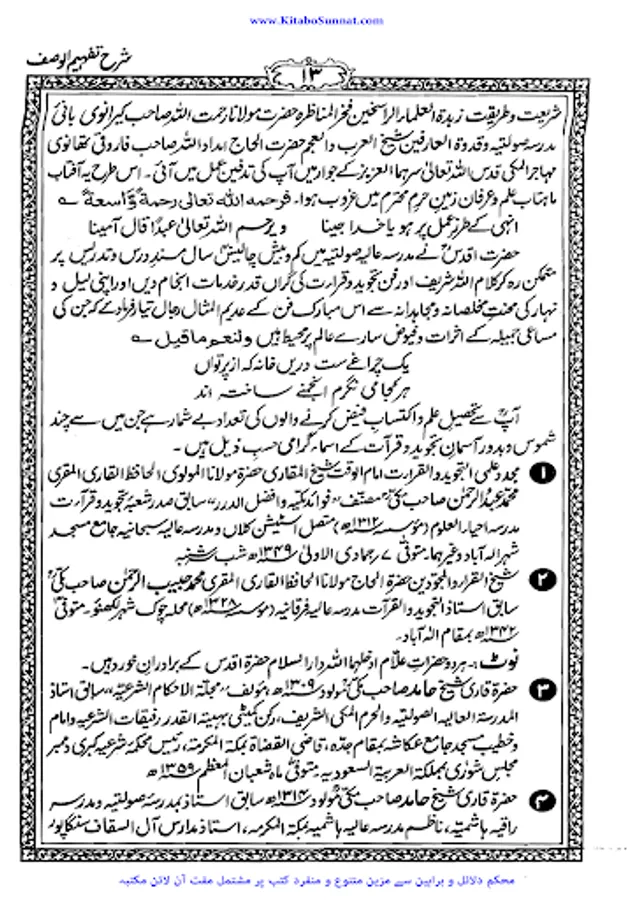 www.KitaboSunnat.com
شرح تفہیم الوصف
۱۳
شریعت وطریقت زبدۃ العلماء الراسخین فخر المناظرہ حضرت مولانا رحمت اللہ صاحب کیرانوی بانی
مدرسہ صولتیہ و قدوۃ العارفین شیخ العرب والعجم حضرت الحاج امداد اللہ صاحب فاروقی تھانوی
مہاجر المکی قدس اللہ تعالیٰ سرہما العزیز کے جوار میں آپ کی تدفین عمل میں آئی۔ اس طرح یہ آفتاب
ماہتاب علم و عرفان زمین حرم محترم میں غروب ہوا۔ فرحمه الله تعالى رحمة واسعة ؎
انہی کے طرز عمل پر ہو یا خدا جینا ویرحم اللہ تعالیٰ عبداً قال آمینا
حضرت اقدسؒ نے مدرسہ عالیہ صولتیہ میں کم و بیش چالیسؔ سال مسند درس و تدریس پر
متمکن رہ کر کلام اللہ شریف اور فن تجوید و قرارت کی گراں قدر خدمات انجام دیں اور اپنی لیل و
نہار کی محنتِ مخلصانہ و مجاہدانہ سے اس مبارک فن کے عدیم المثال رجال تیار فرمادے کہ جن کی
مساعی جمیلہ کے اثرات و فیوض سارے عالم پر محیط ہیں ولنعم ما قيل ؎
یک چراغے ست دریں خانہ کہ از پرتواں
ہر کجا می نگرم انجمنے ساختہ اند
آپؒ سے تحصیلِ علم و اکتسابِ فیض کرنے والوں کی تعداد بے شمار ہے جن میں سے چند
شموس و بدور آسمانِ تجوید و قرآت کے اسماء گرامی حسب ذیل ہیں۔
۱ مجدد علمی التجوید والقرارت امام الوقت شیخ المقاری حضرۃ مولانا المولوی الحافظ القاری المقری
محمد عبدالرحمٰن صاحب مکیؒ مصنف "فوائد مکیہ و افضل الدرر" سابق صدر شعبۂ تجوید و قراءت
مدرسہ احیاء العلوم (مؤسسہ ۱۳۱۲ھ) متصل اسٹیشن کلاں و مدرسہ عالیہ سبحانیہ جامع مسجد
شہر الہ آباد وغیرہما۔ متوفیٰ ۷ رجمادی الاولیٰ ۱۳۴۹ھ شب شنبہ
۲ شیخ القراء والمجودین حضرۃ الحاج مولانا الحافظ القاری المقری محمد حبیب الرحمٰن صاحب مکیؒ
سابق استاذ التجوید والقرآت مدرسہ عالیہ فرقانیہ (مؤسسہ ۱۳۲۸ھ) محلہ چوک شہر لکھنؤ۔ متوفیٰ
۱۳۴۲ھ بمقام الہ آباد۔
نوٹ :۔ ہر دو حضراتِ علّام ادخلہما اللہ دار السلام حضرۃ اقدس کے برادران خورد ہیں۔
۳ حضرۃ قاری شیخ حامد صاحب مکیؒ مولود ۱۳۰۹ھ، مؤلف "مجلۃ الاحکام الشرعیۃ"، سابق استاذ
المدرسۃ العالیہ الصولتیہ والحرم المکی الشریف، رکن کمیٹی بہیئتہ القدر رقیقات الشرعیۃ وامام
و خطیب مسجد جامع عکاشہ بمقام جدّہ، قاضی القضاۃ بمکۃ المکرمۃ، رئیس محکمۂ شرعیہ کبریٰ و ممبر
مجلس شوریٰ بمملکۃ العربیۃ السعودیہ متوفیٰ ماہ شعبان المعظم ۱۳۵۹ھ
۴ حضرۃ قاری شیخ حامد صاحب مکیؒ مولود ۱۳۱۴ھ سابق استاذ بمدرسۂ صولتیہ و مدرسہ
راقیہ ہاشمیۃ، ناظم مدرسہ عالیہ ہاشمیہ بمکۃ المکرمہ، استاذ مدارس آل السقاف سنگاپور
محکم دلائل و براہین سے مزین متنوع و منفرد کتب پر مشتمل مفت آن لائن مکتبہ